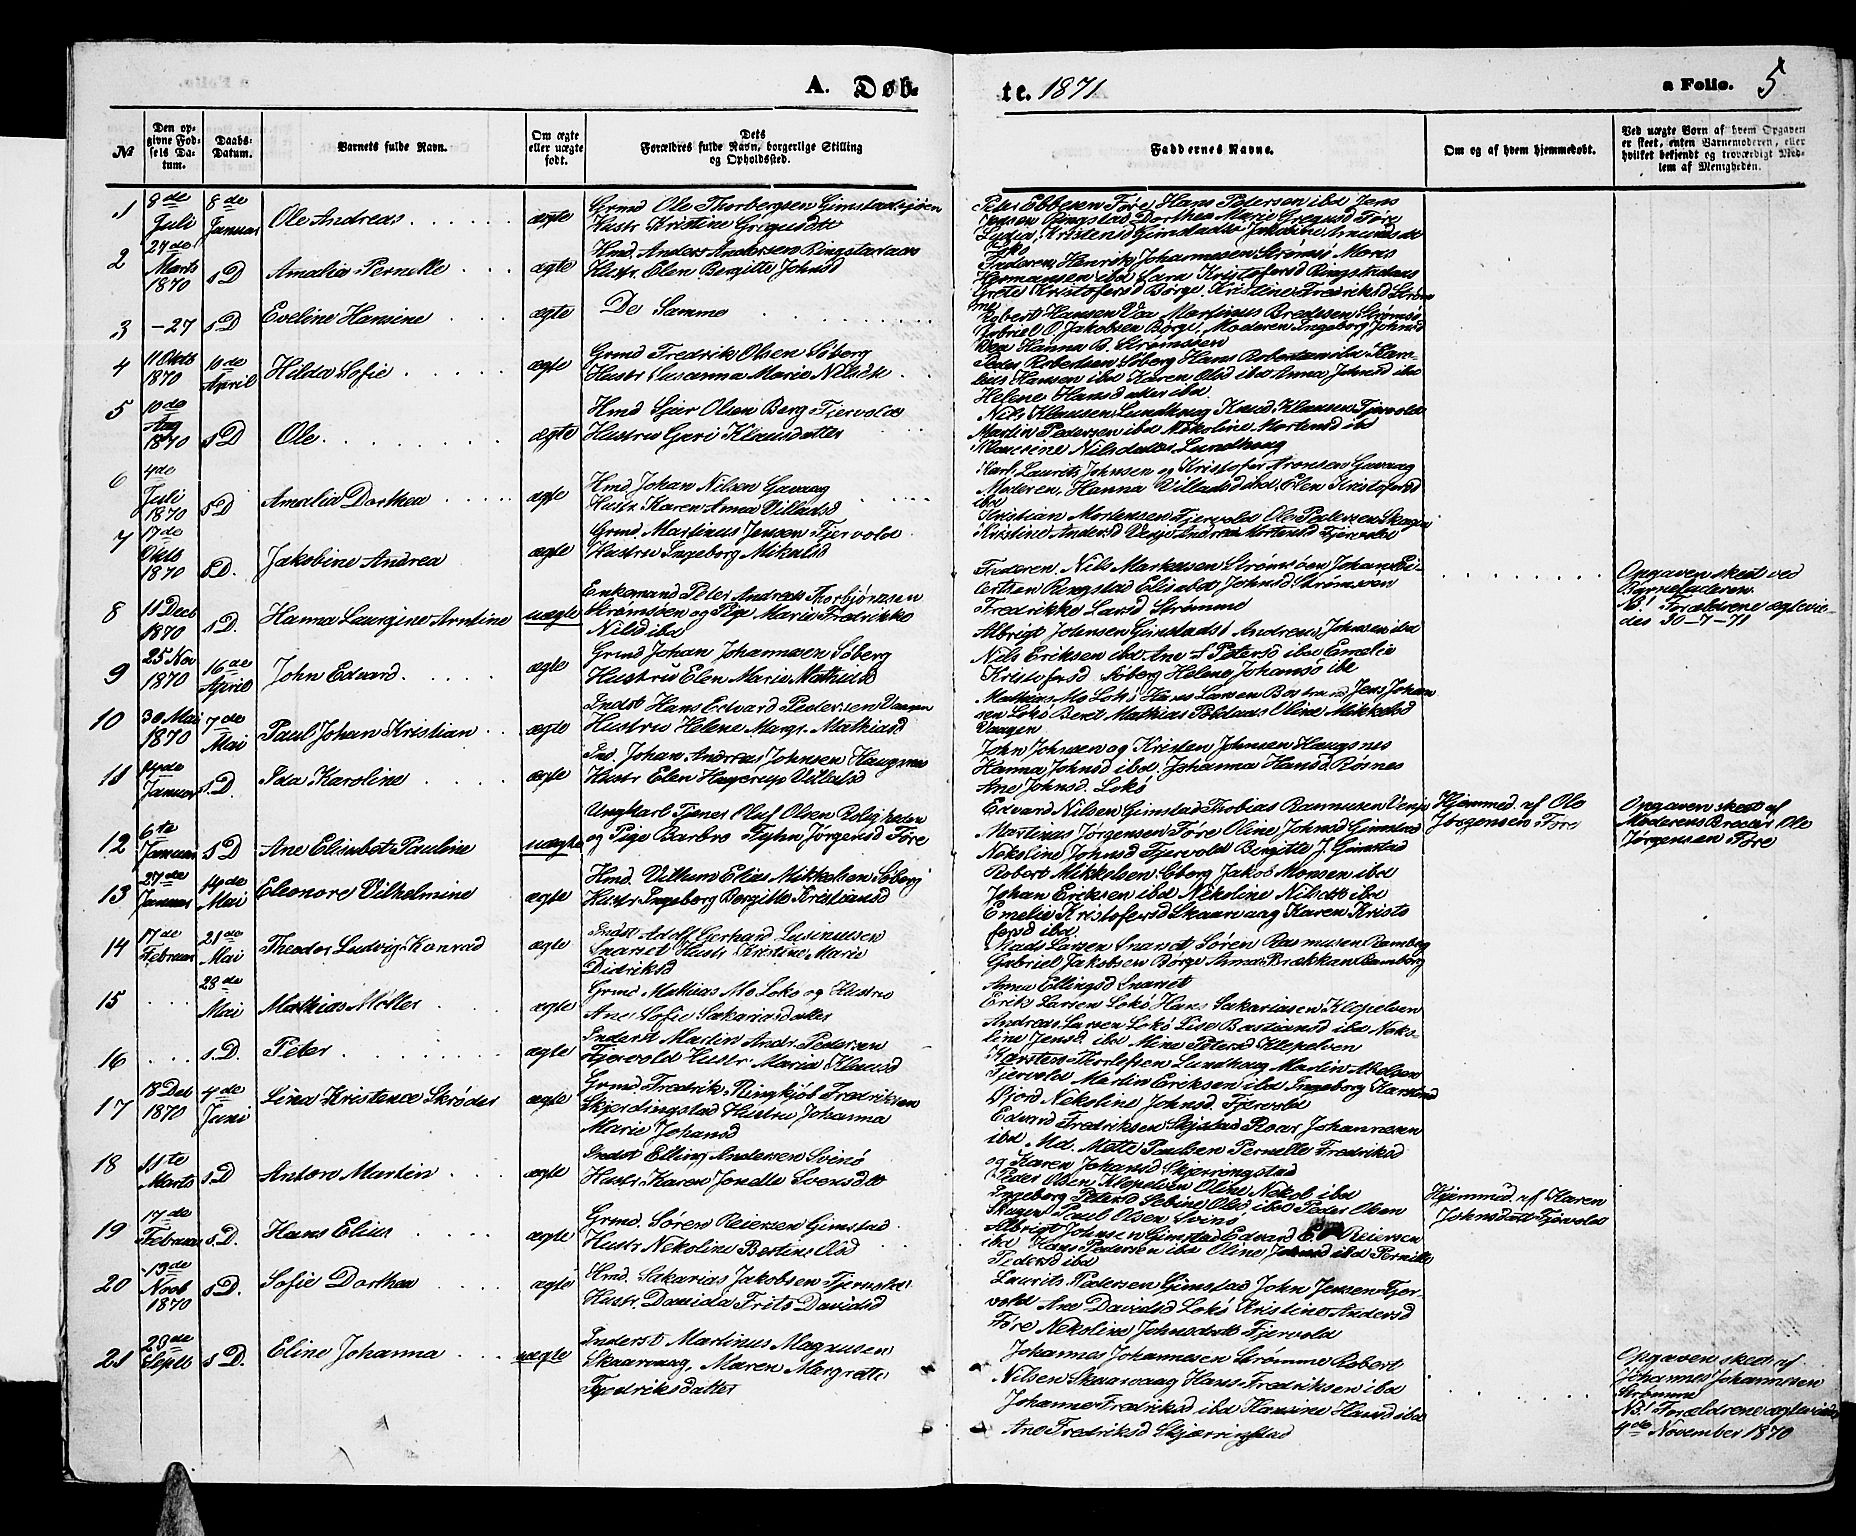 A. Døb-
te. 1871
a Folio. 5
№
Den op-
givne Fød-
sels Da-
tum.
Daabs-
Datum.
Barnets fulde Navn.
Om ægte
eller uægte
født.
Dets
Forældres fulde Navn, borgerlige Stilling
og Opholdssted.
Faddernes Navne.
Om og af hvem hjemmedøbt.
Ved uægte Børn af hvem Opgaven
er skeet, enten Barnemoderen, eller
hvilket bekjendt og troværdigt Med-
lem af Menigheden.
1
8de
Juli
8de
Januar
Ole Andreas
ægte
Grmd Ole Thorbergsen Gimstadsjøen
Hustr Kristine Gregusdtt
Peter Ebbesen Føre Hans Petersen ibd Jens
Jensen Ringstad Dorthea Marie Gregusd Føre
2
24de
Marts
1870
s D
Amalia Pernelle
ægte
Hmd. Anders Andersen Ringstadaas
Hustr. Elen Bergitte Johnsd
Faderen, Henrik Johannesen Strømsø
Hermansen ibd Sara Kristofersd Ringstadaas
Grete Kristofersd Børge, Kristine Fredriksd Strøm
3
-27
s D
Eveline Hansine
ægte
De Samme
Robert Hansen Vea Martinus Bredesen Strømsø
Gabriel O Jakobsen Børge, Moderen Ingeborg Johnsd
Vea Hanna B. Strømsøen
4
11 Oktb
1870
10de
April
Hilda Sofie
ægte
Grmd Fredrik Olsen Søberg
Hustr Susanna Marie Nilsdtt
Peder Robertsen Søberg Hans Robertsen ibd
Hansen ibd Karen Olsd ibd Anna Johnsd ibd
Helene Hansdatter ibd
5
10de
Aug
1870
s D
Ole
ægte
Hmd Sjur Olsen Berg Fjervold
Hustru Guri Klausdatter
Nils Klausen Lundhaug Knud Klausen Fjervold
Martin Pedersen ibd Nikoline Mortensd ibd
Maursine Nilsdatter Lundhaug
6
4de
Juli
1870
s D
Amalia Dorthea
ægte
Hmd Johan Nilsen Gavaag
Hustr Karen Anna Villadsd
Karl Laurits Johnsen og Kristofer Aronsen Gavaag
Moderen, Hanna Villadsd ibd, Elen Kristofersd
ibd
7
17de
Oktb
1870
s D.
Jakobine Andrea
ægte
Grmd. Martinus Jensen Fjervold
Hustru Ingeborg Mikalsd
Kristian Mortensen Fjervold Ole Pedersen Skagen
Kristine Andersd Verje Andrea Mortensd Fjervold
8
11 Decb
1870
s D.
Hanna Laurgine Arntine
uægte
Enkemand Peter Andreas Thorbjørnsen
Strømsøen og Pige Marie Fredrikke
Nilsd ibd
Faderen, Nils Markusen Strømsøen Johan Ei-
lertsen Ringstad Elisabet Johnsd Strømsøen
Fredrikke Larsd Strømme
Opgaven skeet ved
Barnefaderen.
NB! Forældrene ægtevie-
des 30-7-71
9
25 Nov
1870
16de
April
John Edvard.
ægte
Grmd Johan Johannesen Søberg
Hustru Elen Marie Mathisd
Albrigt Johnsen Gimstad Andreas Johnsen ibd
Nils Eriksen ibd Ane S Petersd ibd Emelie
Kristofersd Søberg Helene Johansd ibd
10
30 Mai
1870
7de
Mai
Paul Johan Kristian
ægte
Indst Hans Edvard Pedersen Vaagen
Hustru Helene Margr. Mathiasd
Mathias Mo Lokø Hans Larsen Jens Johan
sen Lokø Beret Mathias Poldaas Oline Mikkelsd
Vaagen
11
14de
Januar
s. D.
Ida Karoline
ægte
Ind. Johan Andreas Johnsen Haugsnes
Hustr Elen Hagerup Villadsd
John Johnsen og Kristen Johnsen Haugsnes
Hanna Johnsd ibd. Johanna Hansd Røsnes
Ane Johnsd. Lokø
12
6te
Januar
s D
Ane Elisabet Pauline
uægte
Ungkarl Tjener Oluf Olsen Roligheden
og Pige Barbro Flyhn Jørgensd Føre
Edvard Nilsen Gimstad Thobias Rasmussen Verje
Martinus Jørgensen Føre Oline Johnsd Gimstad
Nekoline Johnsd Fjervold Bergitte J. Gimstad
Hjemmed. af Ole
Jørgensen Føre
Opgaven skeet af
Moderens Broder Ole
Jørgensen Føre
13
27de
Januar
14de
Mai
Eleonore Vilhelmine
ægte
Hmd. Villum Elias Mikkelsen Søberg
Hustr Ingeborg Bergitte Kristiansd
Robert Mikkelsen Søberg Jakob Monsen ibd
Johan Eriksen ibd Nekoline Nilsdtt ibd
Emelie Kristofersd Skaarvaag Karen Kristo
fersd ibd
14
17de
Februar
21de
Mai
Theodor Ludvig Konrad
ægte
Indst Adolf Gerhard Lusinusen
Snarset Hustr Kristine Marie
Didriksd
Mads Larsen Snarset Søren Rasmusen Ramberg
Gabriel Jakobsen Børge Anna Brækkan Ramberg
Anna Ellingsd Snarset
15
28de
Mai
Mathias Møller
ægte
Grmd Mathias Mo Loko og Hustru
Ane Sofie Sakariasdatter
Erik Larsen Lokø Hans Sakariassen Klepelven
Andreas Larsen Lokø Lise Bastiansd ibd Neko-
line Jensd. ibd Mine Petersd Klepelven
16
s. D.
Peter
ægte
Inderst Martin Andr. Pedersen
Fjervold Hustr Maria Klausd
Karsten Thorlefsen Lundhaug Martin Abelsen
Fjervold Martin Eriksen ibd Ingeborg Karstensd
Fjord Nekoline Johnsd. Fjervold
17
18 Deb
1870
4de
Juni
Lina Kristence Skrøder
ægte
Grmd Fredrik Ringkjøb Fredriksen
Skjerdingstad Hustru Johanna
Marie Johansd
Edvard Fredriksen Skjolstad Roar Johannesen
ibd, Md. Mette Paulsen Pernelle Fredriksd
og Karen Johansd Skjerringstad
18
11te
Marts
s. D
Anton Martin
ægte
Indst Elling Andersen Svinø
Hustr Karen Jonelle Svensdtt
Peder Olsen Klepelven Oline Nekol ibd
Ingeborg Petersd Sebine Olsd ibd Peder Olsen
Skagen Paul Olsen Svinø
Hjemmed. af Karen
Johnsdatt Fjervold
19
17de
Februar
s D.
Hans Elias
ægte
Grmd. Søren Reiersen Gimstad
Hustr Nekoline Bertine Olsd
Albrigt Johnsen Gimstad Edvard E. Reiersen
ibd Hans Pedersen ibd Oline Johnsd ibd Pernille
Pedersd ibd
20
19de
Novb
1870
s D.
Sofie Dorthea
ægte
Hmd. Sakarias Jakobsen Fjervold
Hustr. Davida Frits Davidsd
Laurits Pedersen Gimstad John Jensen Fjer-
vold Ane Davidsd Lokø Kristine Andersd
Føre Nekoline Johnsdatt Fjervold
21
29de
Septb
s D.
Eline Johanna
uægte
Inderst Martinus Magnusen
Skaarvaag, Maren Margrethe
Fredriksdatter
Johannes Johannesen Strømme Robert
Nilsen Skaarvaag Hans Fredriksen ibd
Johanne Fredriksd ibd Hansine Hansd ibd
Ane Fredriksd Skjærringstad
Opgaven skeet af
Johannes Johannesen
Strømme
NB! Forældrene ægteviede
4de November 1870